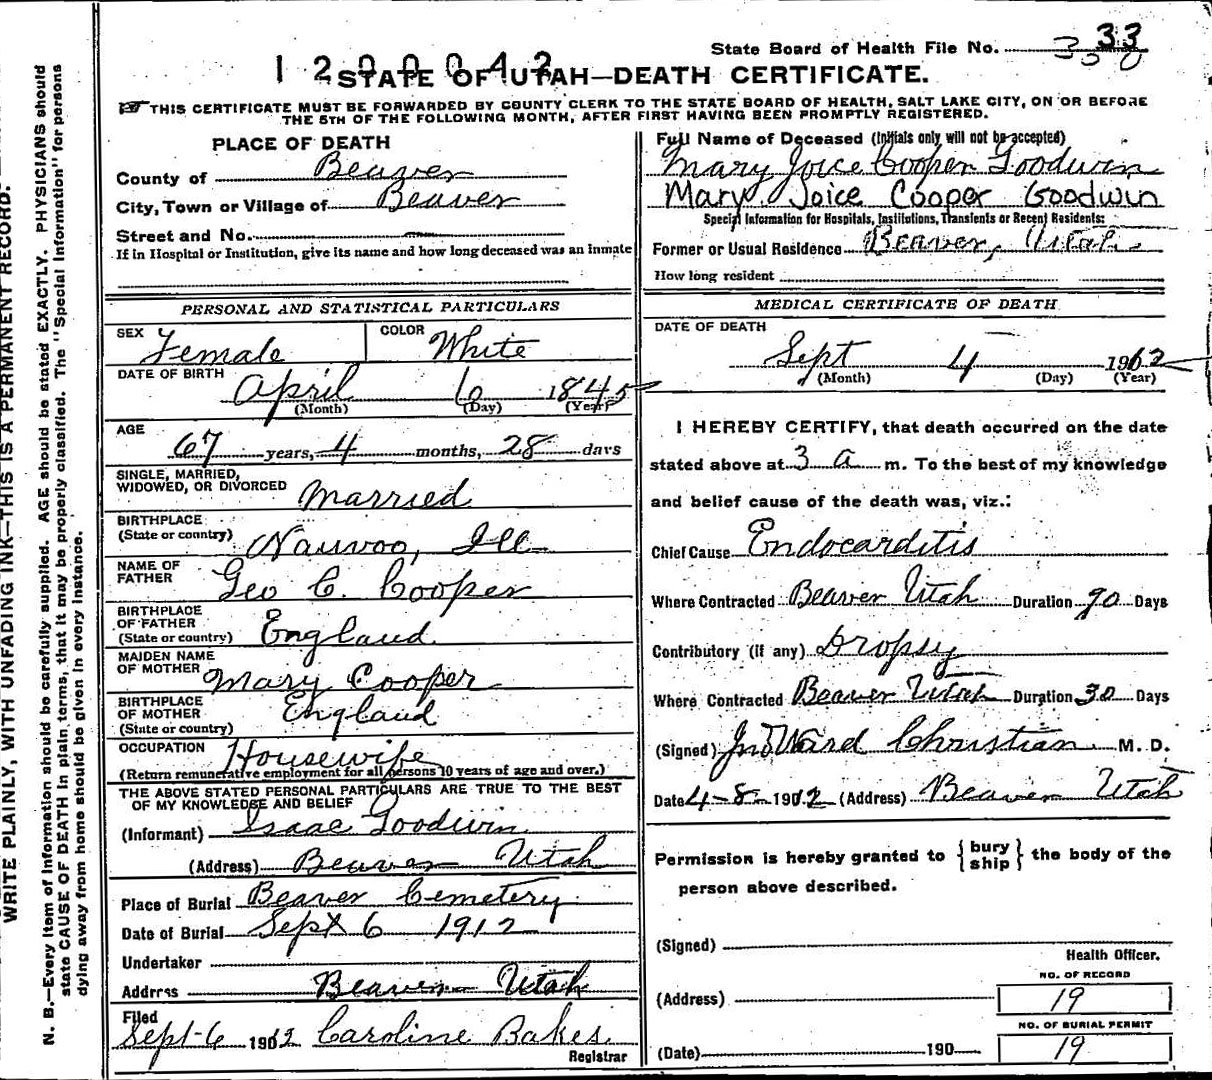 State Board of Health File No. 33
1200042
STATE OF UTAH—DEATH CERTIFICATE.
THIS CERTIFICATE MUST BE FORWARDED BY COUNTY CLERK TO THE STATE BOARD OF HEALTH, SALT LAKE CITY, ON OR BEFORE
THE 5TH OF THE FOLLOWING MONTH, AFTER FIRST HAVING BEEN PROMPTLY REGISTERED.
PLACE OF DEATH
County of Beaver
City, Town or Village of Beaver
Street and No.
If in Hospital or Institution, give its name and how long deceased was an inmate
Full Name of Deceased (Initials only will not be accepted)
Mary Joice Cooper Goodwin
Mary Joice Cooper Goodwin
Special Information for Hospitals, Institutions, Transients or Recent Residents:
Former or Usual Residence Beaver, Utah.
How long resident
PERSONAL AND STATISTICAL PARTICULARS
SEX Female COLOR White
DATE OF BIRTH April 6 1845
(Month) (Day) (Year)
AGE 67 years, 4 months, 28 days
SINGLE, MARRIED,
WIDOWED, OR DIVORCED Married
BIRTHPLACE
(State or country) Nauvoo, Ill
NAME OF
FATHER Geo C. Cooper
BIRTHPLACE
OF FATHER
(State or country) England
MAIDEN NAME
OF MOTHER Mary Cooper
BIRTHPLACE
OF MOTHER
(State or country) England
OCCUPATION Housewife
(Return remunerative employment for all persons 10 years of age and over.)
THE ABOVE STATED PERSONAL PARTICULARS ARE TRUE TO THE BEST
OF MY KNOWLEDGE AND BELIEF
(Informant) Isaac Goodwin
(Address) Beaver Utah
Place of Burial Beaver Cemetery
Date of Burial Sept 6 1912
Undertaker
Address Beaver Utah
Filed
Sept-6 1912 Caroline Bakes
Registrar
MEDICAL CERTIFICATE OF DEATH
DATE OF DEATH
Sept 4 1912
(Month) (Day) (Year)
I HEREBY CERTIFY, that death occurred on the date
stated above at 3 a m. To the best of my knowledge
and belief cause of the death was, viz.:
Chief Cause Endocarditis
Where Contracted Beaver Utah Duration 90 Days
Contributory (if any) Dropsy
Where Contracted Beaver Utah Duration 30 Days
(Signed) Jno Ward Christian M. D.
Date 4-8-1912 (Address) Beaver Utah
Permission is hereby granted to {bury
ship} the body of the
person above described.
(Signed)
Health Officer.
NO. OF RECORD
(Address) 19
NO. OF BURIAL PERMIT
(Date) 190 19
WRITE PLAINLY, WITH UNFADING INK—THIS IS A PERMANENT RECORD.
N. B.—Every item of information should be carefully supplied. AGE should be stated EXACTLY. PHYSICIANS should
state CAUSE OF DEATH in plain terms, that it may be properly classified. The "Special Information" for persons
dying away from home should be given in every instance.